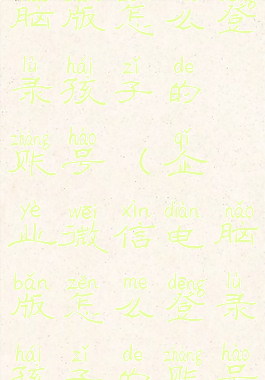 脑版怎么登
lù hái zǐ de
录孩子的
zhàng hào qǐ
账号（企
yè wēi xìn diàn nǎo
业微信电脑
bǎn zěn me dēng lù
版怎么登录
hái zǐ de zhàng hào
孩子的账号